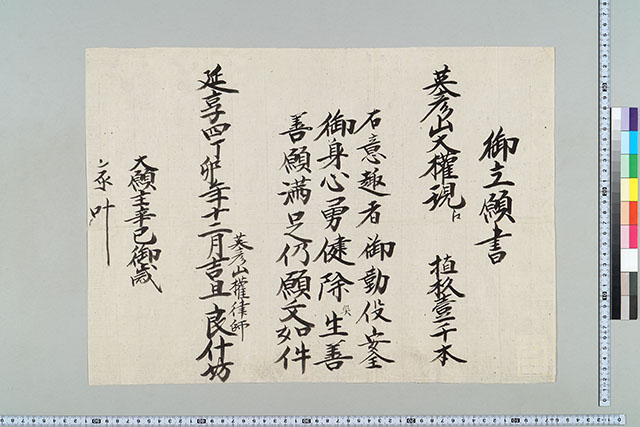 御立願書
英彦山大權現江 植杉壹千本
右意趣者御勤役安全
御身心勇健除災生善
善願満足仍願文如件
延享四丁卯年十二月吉旦 英彦山權律師 良什坊
大願主辛巳御歳
叶